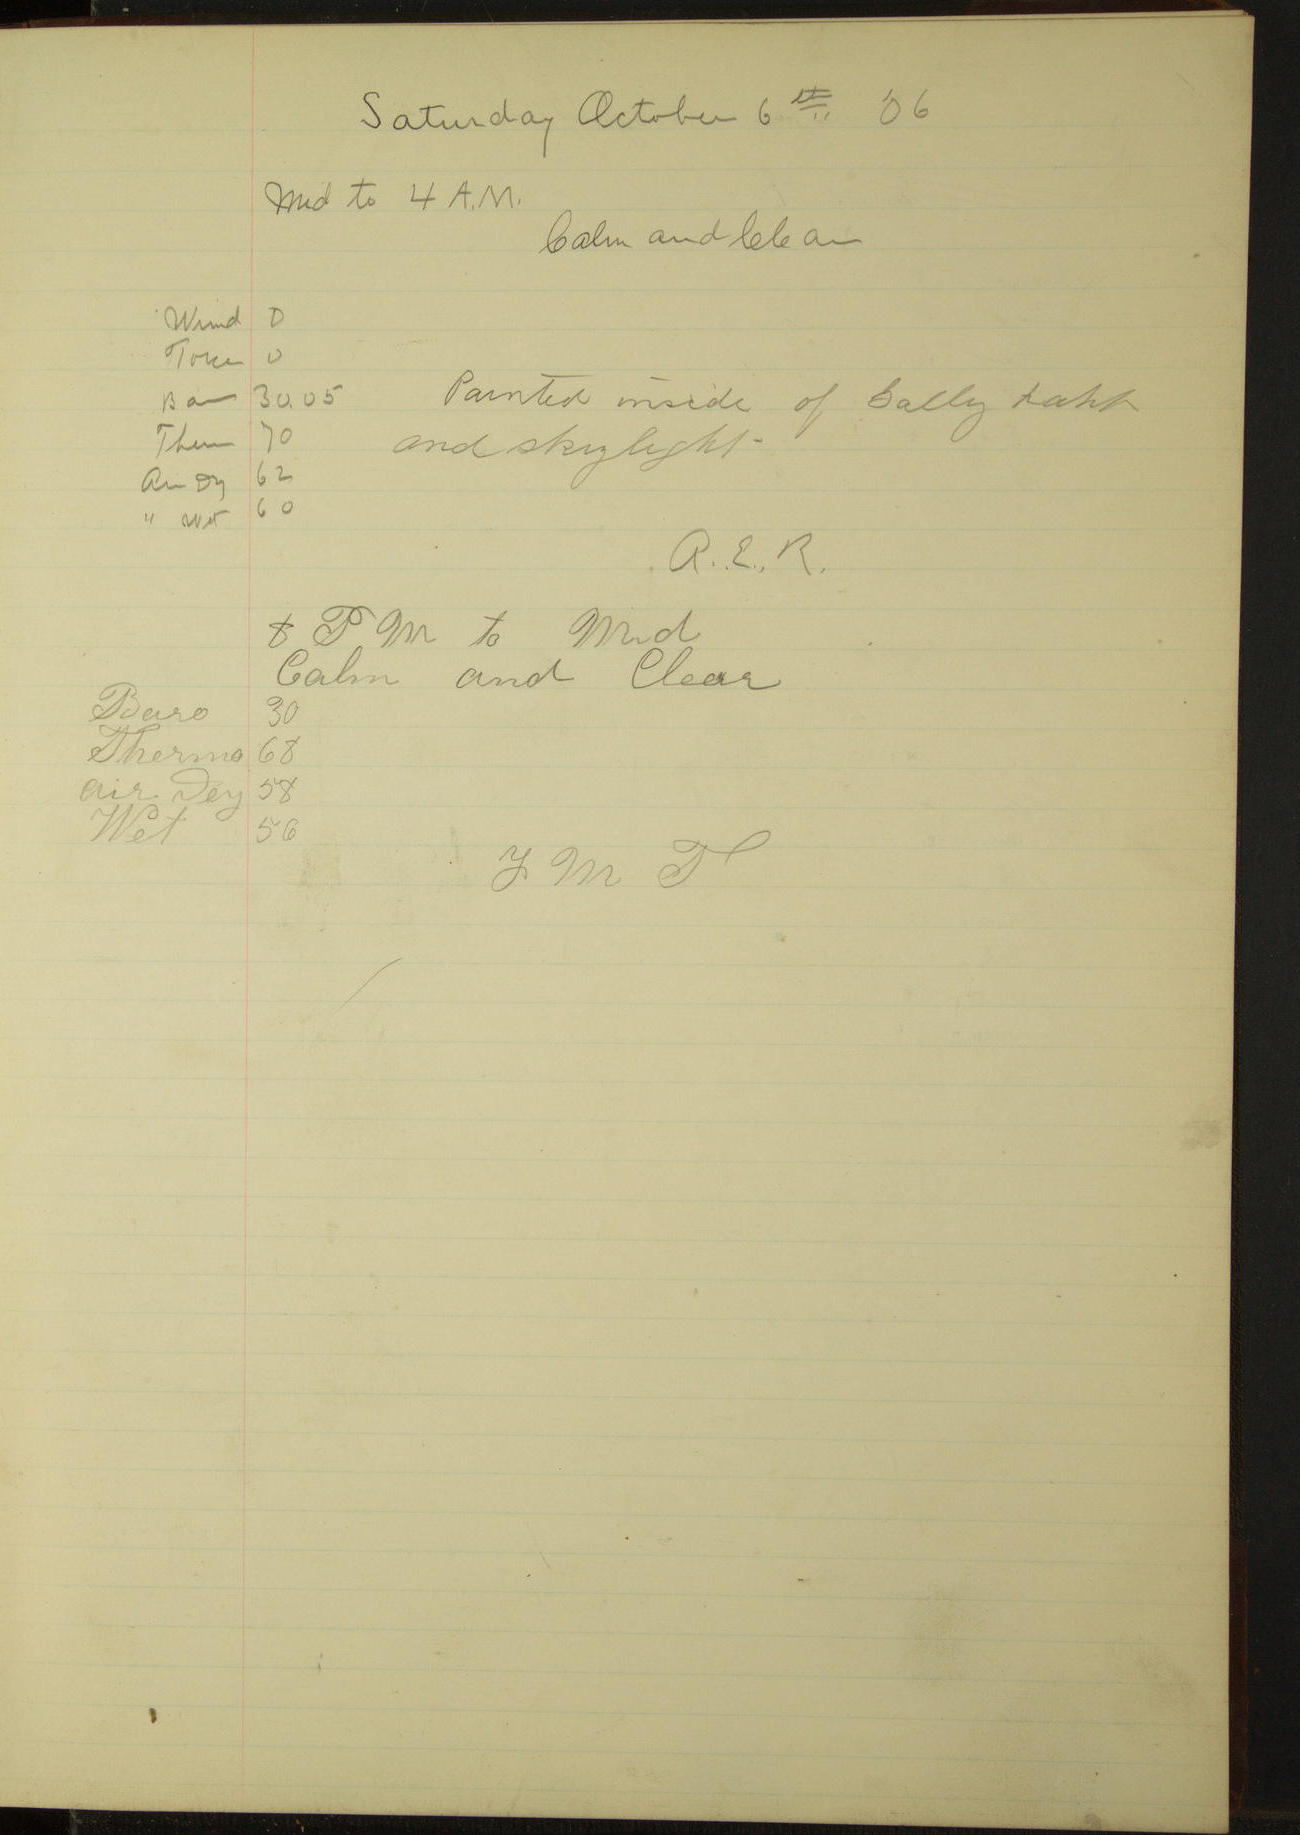 Saturday October 6th '06
Mid to 4 A.M.
Calm and Clear
Wind 0
Force 0
Bar 30.05
Painted inside of Galley hatch
Ther 70
and skylight-
Air Dry 62
" Wet 60
A.E.R.
8 P M to Mid
Calm and Clear
Baro 30
Thermo 68
air Dry 58
Wet 56
F M T